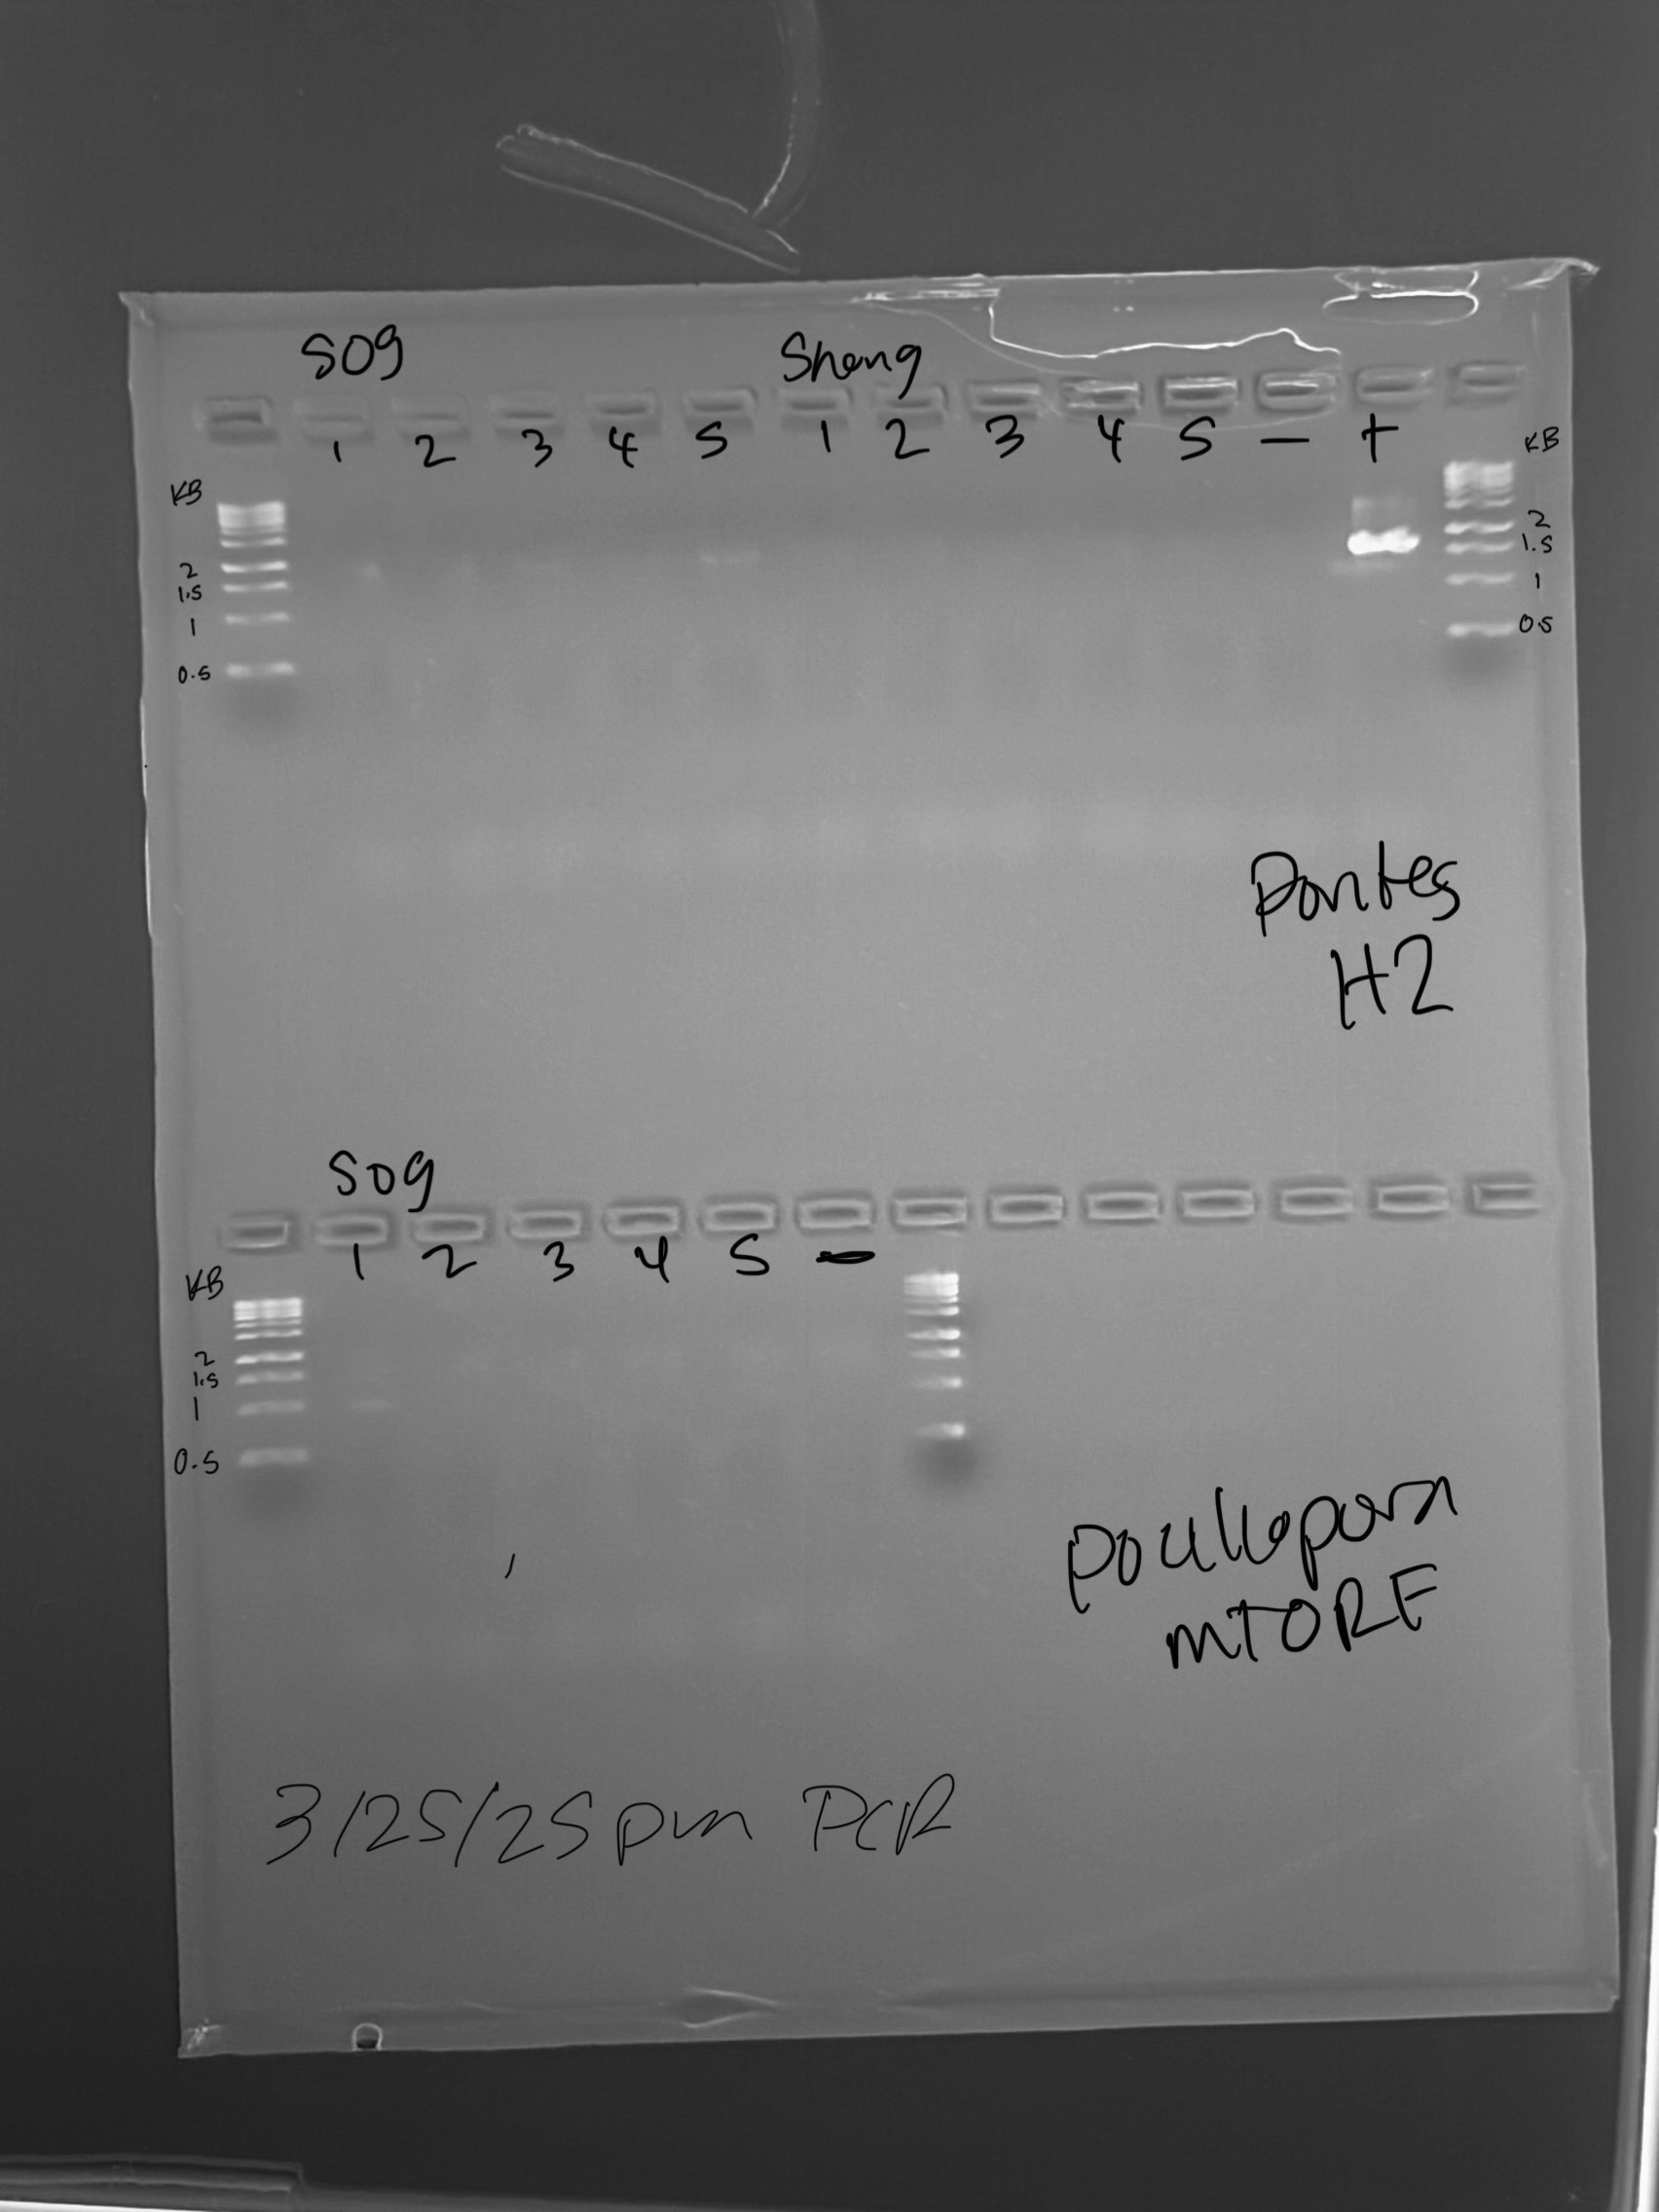 SO9 Sheng
1 2 3 4 5 1 2 3 4 5 - +
KB KB
2 2
1.5 1.5
1 1
0.5 0.5
Porites
H2
SO9
1 2 3 4 5 -
KB
2
1.5
1
0.5
pocillopora
mtORF
3/25/25 pm PCR